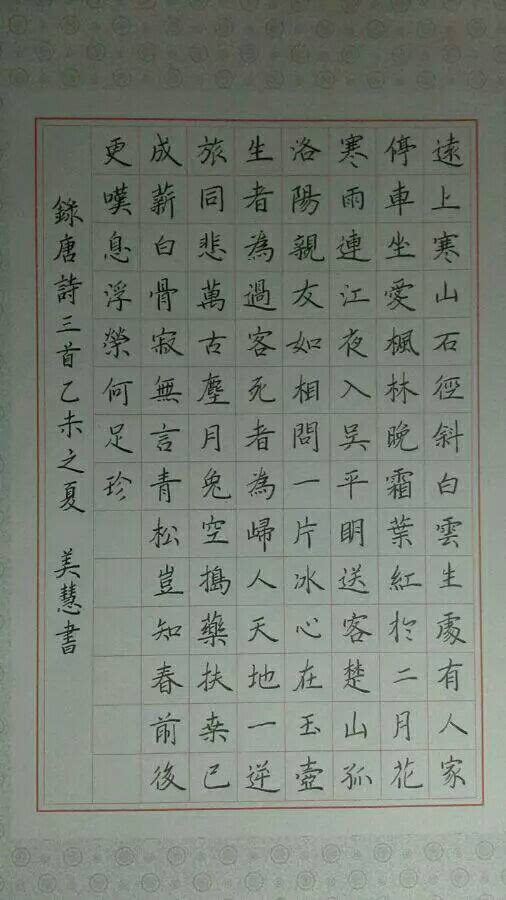 遠上寒山石徑斜白雲生處有人家
停車坐愛楓林晚霜葉紅於二月花
寒雨連江夜入吳平明送客楚山孤
洛陽親友如相問一片冰心在玉壺
生者為過客死者為歸人天地一逆
旅同悲萬古塵月兔空搗藥扶桑已
成薪白骨寂無言青松豈知春前後
更嘆息浮榮何足珍
錄唐詩三首乙未之夏 美慧書